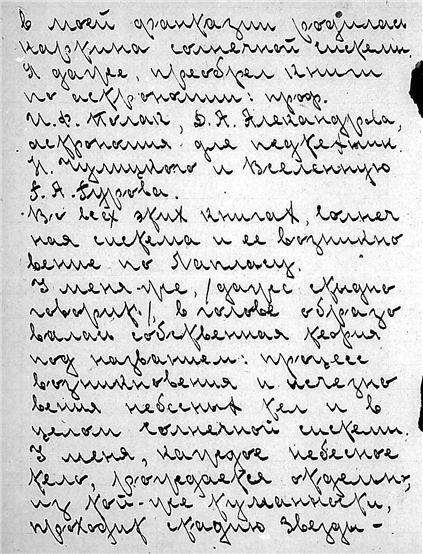 в моей фантазии родилась
картина солнечной системы.
Я даже, преобрел книги
по астрономии: проф.
И.Ф. Полак, Д.А. Александрова,
астрономия для педтехник.
Н. Чулицкого и Вселенную
Г.А. Гурова.
Во всех этих книгах, солнеч
ная система и ее возникно
вение по Лапласу.
У меня-же, /даже стыдно
говорить/, в голове образо
валась собственная теория
под названием: процесс
возникновения и исчезно
вения небесных тел и в
целом солнечной системы.
У меня, каждое небесное
тело, рождается отдельно,
из той-же туманности,
проходит стадию звезды-